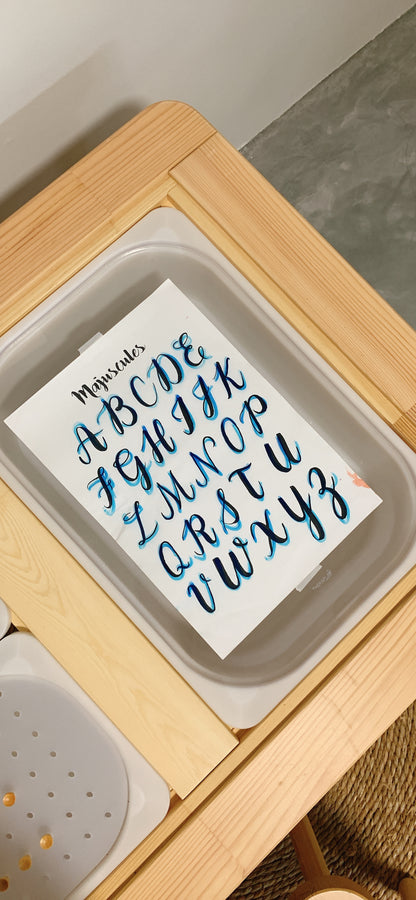 Majuscules
A B C D E
F G H I J K
L M N O P
Q R S T U
V W X Y Z